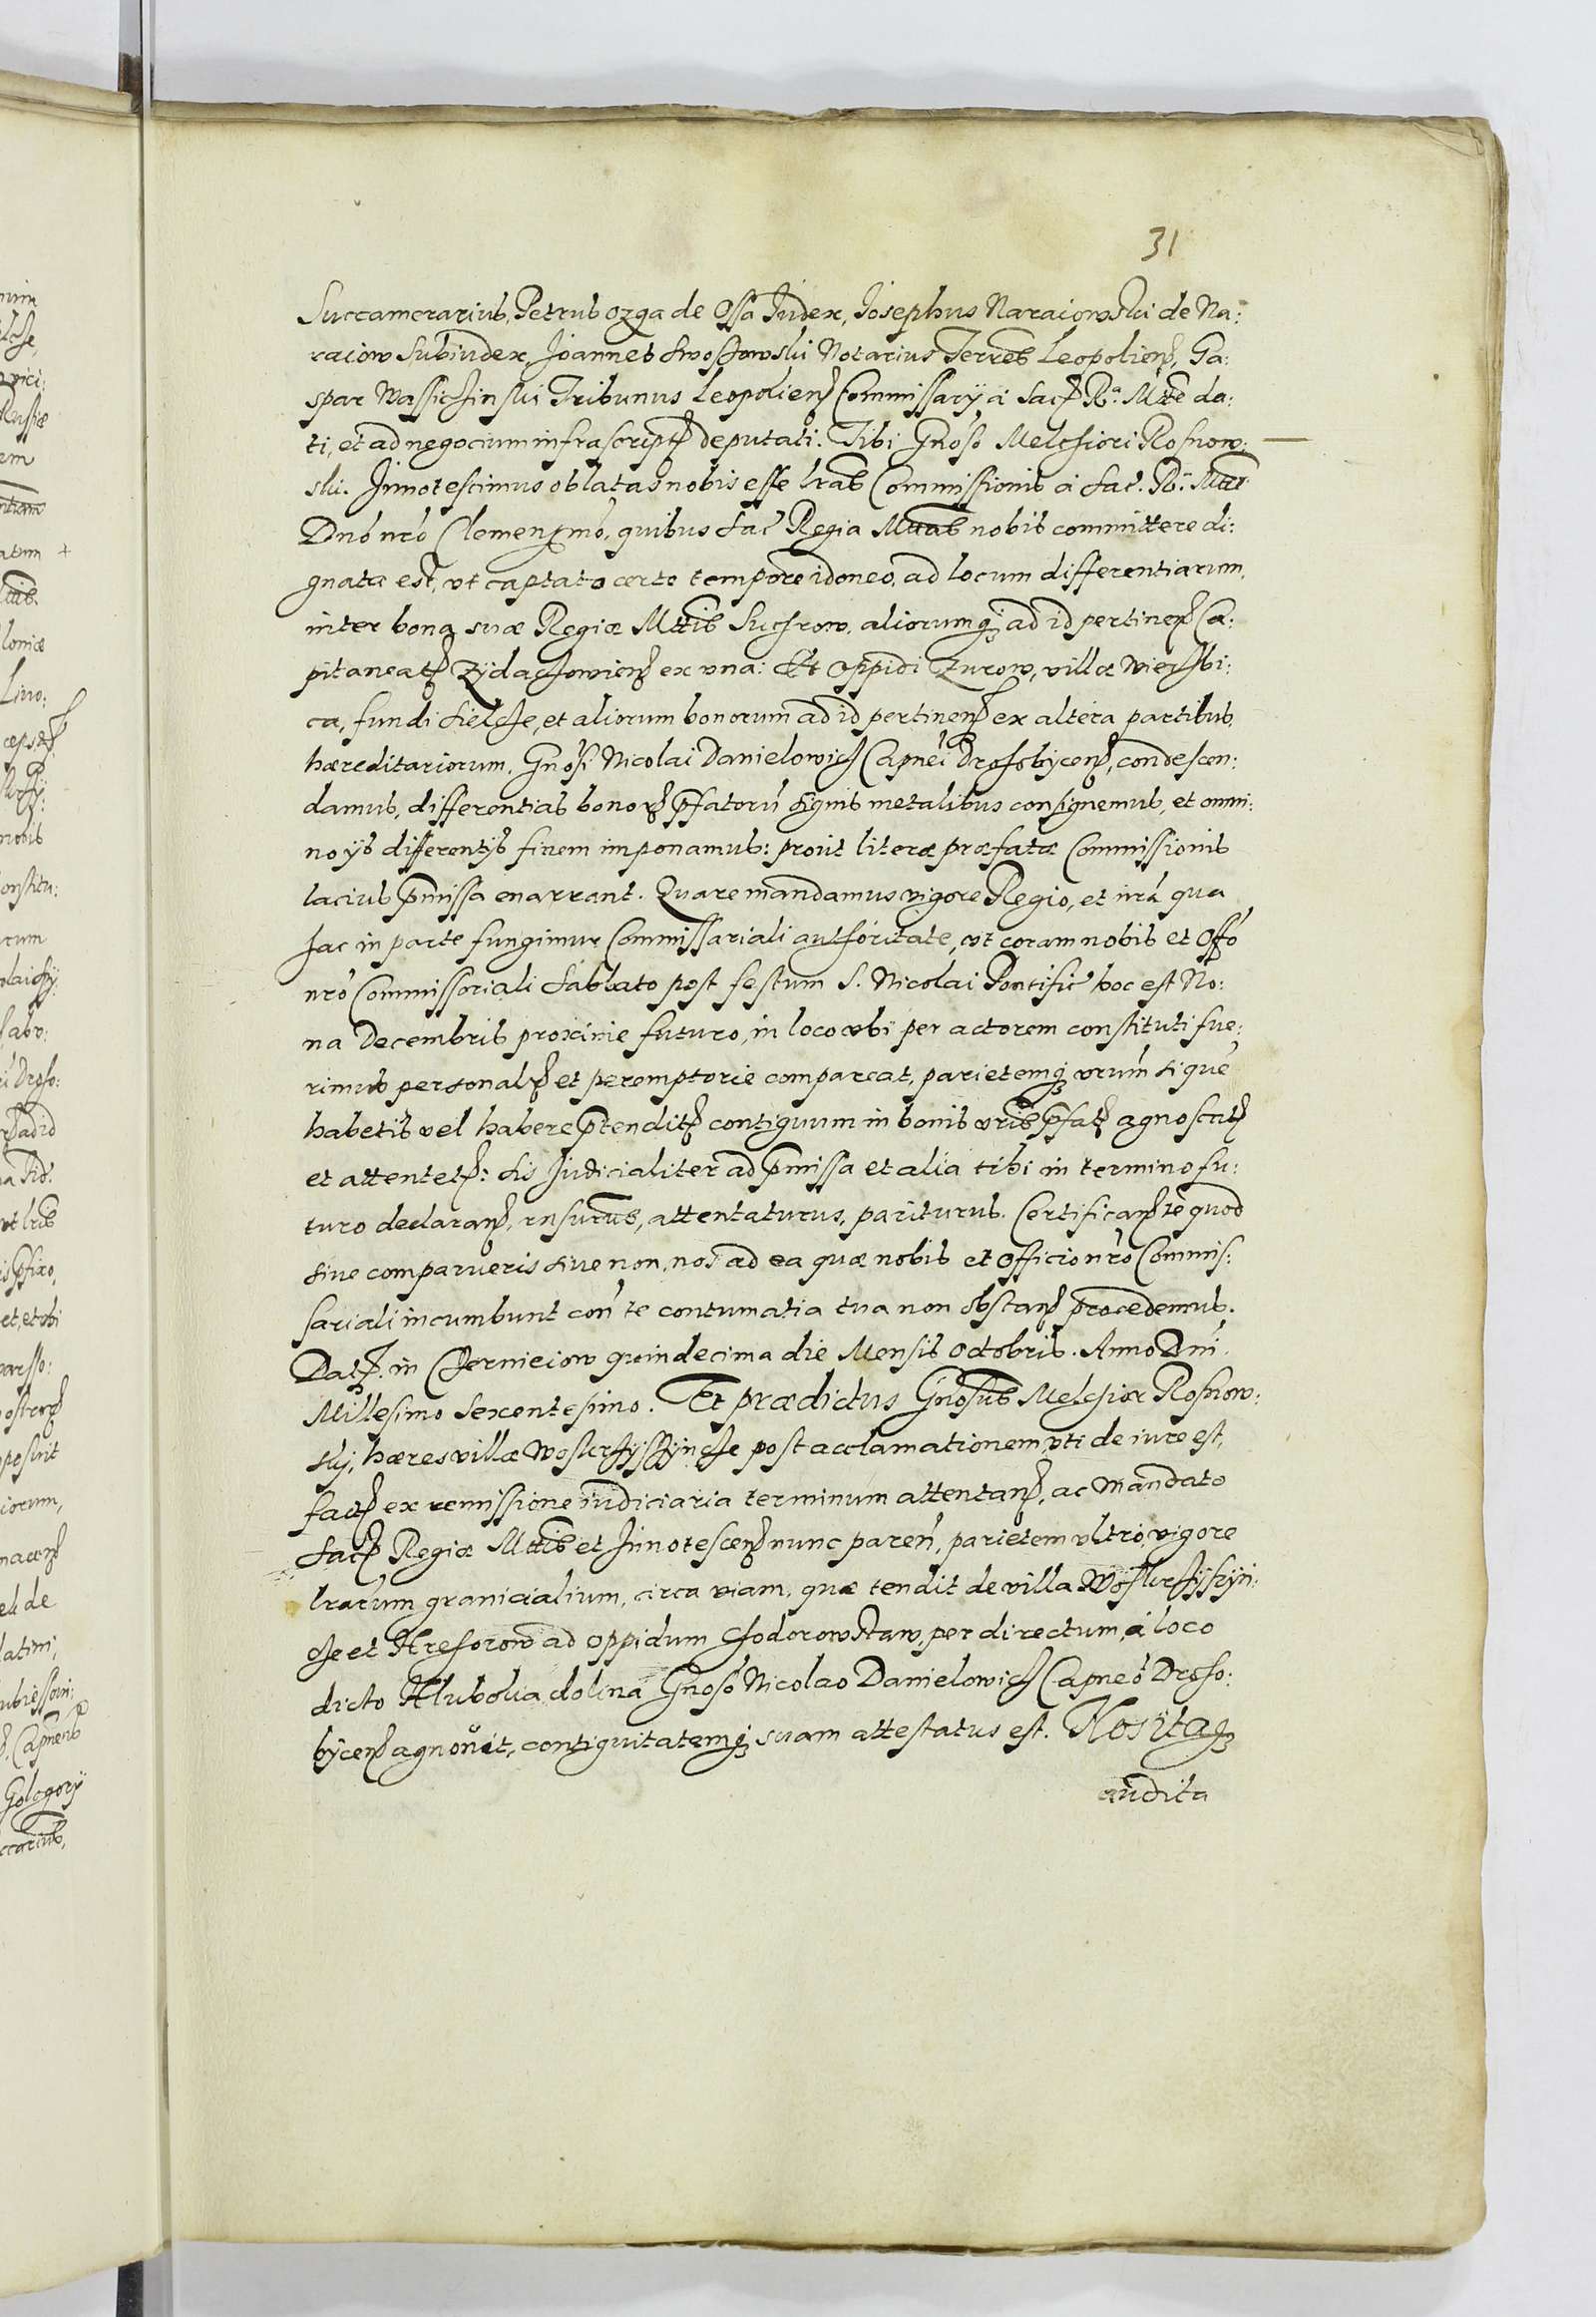 31
Succamerarius, Petrus Ozga de Ossa Iudex, Iosephus Naraiowski de Na:
raiow Subiudex, Joannes Swoszowski Notarius Terres Leopolien, Ga:
spar Wassiczinski Tribunus Leopolien Commissary à Sac R.ª Mtte da:
ti, et ad negocium infrascript deputati. Tibi Gnoso Melchiori Rosnow:
ski. Innotescimus oblatas nobis esse lras Commissionis à Sac. R. Mtte
Dno nro Clemenmo, quibus Sac Regia Mttas nobis committere di:
gnata est, vt captato certo tempore idoneo, ad locum differentiarum,
inter bona suæ Regiæ Mttis Suchrow, aliorumq ad id pertinen Ca:
pitaneat Zÿdaczowien ex vna: Et Oppidi Zurow, villæ Wierzbi:
ca, fundi Sielcze, et aliorum bonorum ad id pertinen ex altera partibus
hæreditariorum, Gnosi Nicolai Danielowicz Capnei Drohobÿcen, condescen:
damus, differentias bonor pfatoru signis metalibus consignemus, et omni:
no ÿs differentÿs finem imponamus: prout literæ præfatæ Commissionis
lacius pmissa enarrant. Quare mandamus vigore Regio, et nra qua
hac in parte fungimur Commissariali authoritate, vt coram nobis et Offo
nro Commissoriali Sabbato post festum S. Nicolai Pontific hoc est No:
na Decembris proxime futuro, in loco vbi per actorem constituti fue:
rimus personal et peremptorie compareat, parietemq vrum si que
habetis vel habere ptendit contiguum in bonis vris pfat agnoscat
et attentet: Sis Iudicialiter ad pmissa et alia tibi in termino fu:
turo declaran, rnsurus, attentaturus, pariturus. Certifican te quod
siue comparueris siue non, nos ad ea quæ nobis et Officio nro Commis:
sariali incumbunt con te contumatia tua non obstan procedemus.
Dat. in Czernieiow quindecima die Mensis Octobris. Anno Dni
Millesimo Sexentesimo. Et prædictus Gnosus Melchior Rosnow:
skj, hæres villæ Woskrzÿszÿncze post acclamationem, vti de iure est,
fact ex remissione iudiciaria terminum attentan, ac Mandato
Sac Regiæ Mttis et Innotescen nunc paren, parietem vltro, vigore
lrarum granicialium, circa viam, quæ tendit de villa Woskrzÿszÿn:
cze et Hrehorow ad Oppidum Chodorowstaw, per directum, à loco
dicto Hluboka dolina Gnoso Nicolao Danielowicz Capneo Droho:
bÿcen agnouit, contiguitatemq suam attestatus est. Nos itaq
audita